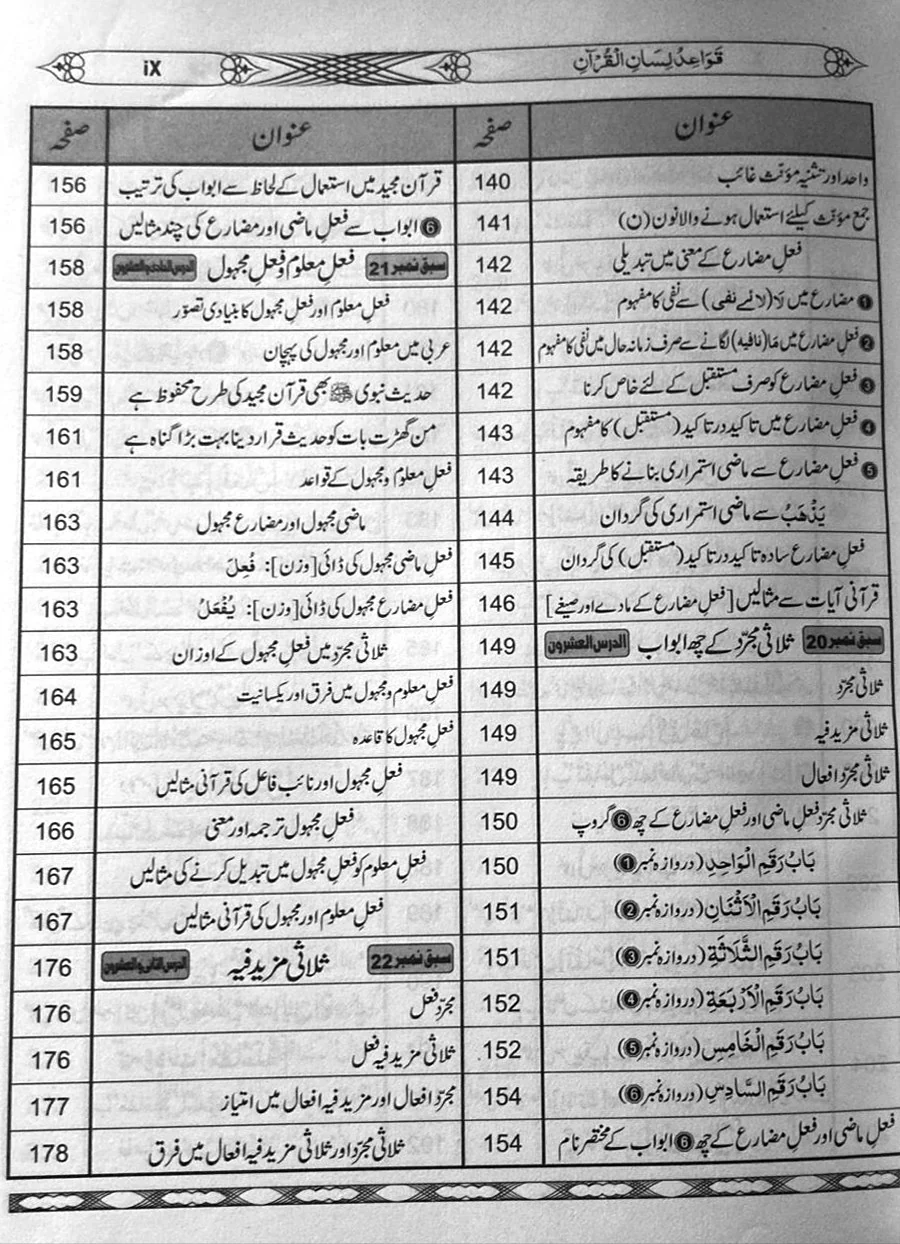 قَوَاعِدُ لِسَانِ الْقُرْآنِ
iX
عنوان
صفحہ
واحد اور تثنیہ مؤنث غائب
140
جمع مؤنث کیلئے استعمال ہونے والا نون (ن)
141
فعلِ مضارع کے معنی میں تبدیلی
142
❶ مضارع میں لَا (لائے نفی) سے نفی کا مفہوم
142
❷ فعلِ مضارع میں مَا (نافیہ) لگانے سے صرف زمانہ حال میں نفی کا مفہوم
142
❸ فعلِ مضارع کو صرف مستقبل کے لئے خاص کرنا
142
❹ فعلِ مضارع میں تاکید در تاکید (مستقبل) کا مفہوم
143
❺ فعلِ مضارع سے ماضی استمراری بنانے کا طریقہ
143
يَذْهَبُ سے ماضی استمراری کی گردان
144
فعلِ مضارع سادہ تاکید در تاکید (مستقبل) کی گردان
145
قرآنی آیات سے مثالیں [فعلِ مضارع کے مادے اور صیغے]
146
سبق نمبر 20 ثلاثی مجرّد کے چھ ابواب الدرس العشرون
149
ثلاثی مجرّد
149
ثلاثی مزید فیہ
149
ثلاثی مجرّد افعال
149
ثلاثی مجرّد فعلِ ماضی اور فعلِ مضارع کے چھ ❻ گروپ
150
بَابُ رَقَمِ الْوَاحِدِ (دروازہ نمبر ❶)
150
بَابُ رَقَمِ الْاَثْنَانِ (دروازہ نمبر ❷)
151
بَابُ رَقَمِ الثَّلَاثَةِ (دروازہ نمبر ❸)
151
بَابُ رَقَمِ الْاَرْبَعَةِ (دروازہ نمبر ❹)
152
بَابُ رَقَمِ الْخَامِسِ (دروازہ نمبر ❺)
152
بَابُ رَقَمِ السَّادِسِ (دروازہ نمبر ❻)
154
فعلِ ماضی اور فعلِ مضارع کے چھ ❻ ابواب کے مختصر نام
154
عنوان
صفحہ
قرآن مجید میں استعمال کے لحاظ سے ابواب کی ترتیب
156
❻ ابواب سے فعلِ ماضی اور مضارع کی چند مثالیں
156
سبق نمبر 21 فعلِ معلوم و فعلِ مجہول الدرس الحادی والعشرون
158
فعلِ معلوم اور فعلِ مجہول کا بنیادی تصوّر
158
عربی میں معلوم اور مجہول کی پہچان
158
حدیث نبوی ﷺ بھی قرآن مجید کی طرح محفوظ ہے
159
من گھڑت بات کو حدیث قرار دینا بہت بڑا گناہ ہے
161
فعلِ معلوم و مجہول کے قواعد
161
ماضی مجہول اور مضارع مجہول
163
فعلِ ماضی مجہول کی ڈائی [وزن]: فُعِلَ
163
فعلِ مضارع مجہول کی ڈائی [وزن]: يُفْعَلُ
163
ثلاثی مجرّد میں فعلِ مجہول کے اوزان
163
فعلِ معلوم و مجہول میں فرق اور یکسانیت
164
فعلِ مجہول کا قاعدہ
165
فعلِ مجہول اور نائب فاعل کی قرآنی مثالیں
165
فعلِ مجہول ترجمہ اور معنی
166
فعلِ معلوم کو فعلِ مجہول میں تبدیل کرنے کی مثالیں
167
فعلِ معلوم اور مجہول کی قرآنی مثالیں
167
سبق نمبر 22 ثلاثی مزید فیہ الدرس الثانی والعشرون
176
مجرّد فعل
176
ثلاثی مزید فیہ فعل
176
مجرّد افعال اور مزید فیہ افعال میں امتیاز
177
ثلاثی مجرّد اور ثلاثی مزید فیہ افعال میں فرق
178